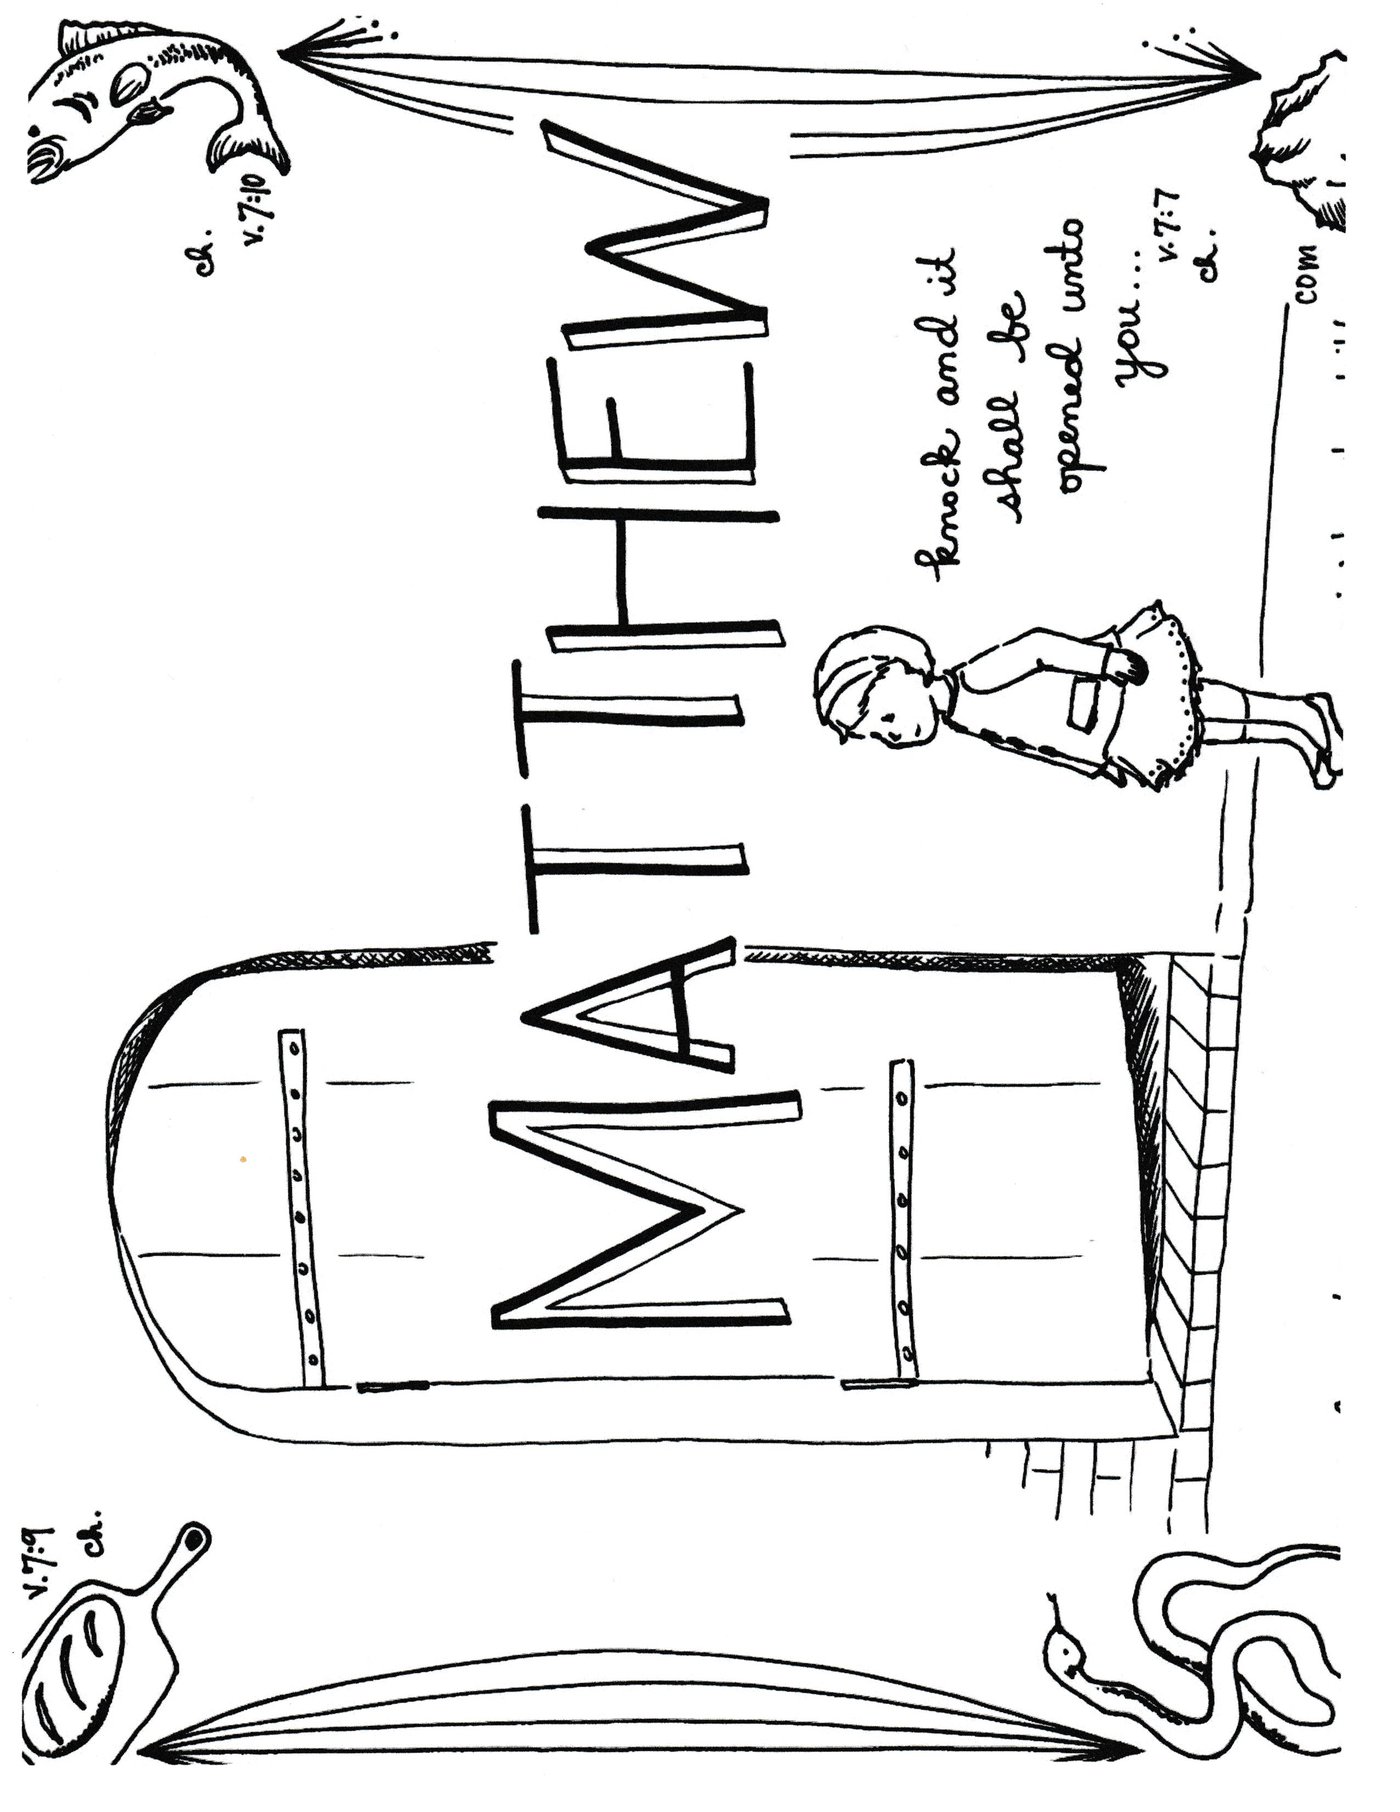 v.7:9
ch.
ch.
v.7:10
MATTHEW
knock and it
shall be
opened unto
you...
v.7:7
ch.
com